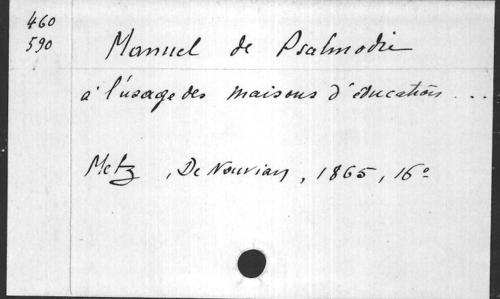 460
590
Manuel de Psalmodie
à l'usage des maisons d'éducation ...
Metz, De Nouvian, 1865, 16º